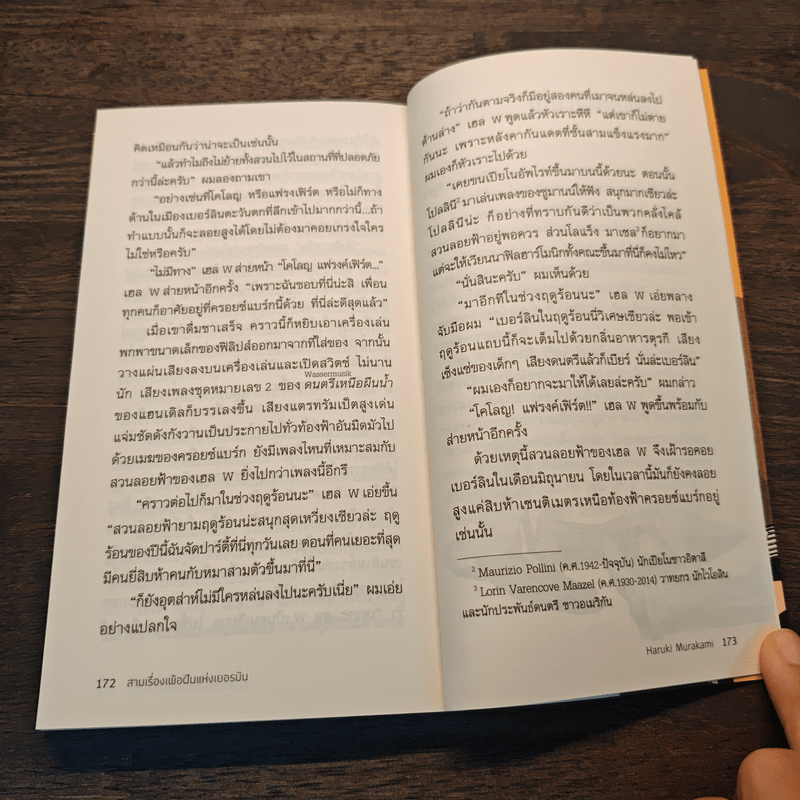 คิดเหมือนกันว่าน่าจะเป็นเช่นนั้น
“แล้วทำไมถึงไม่ย้ายทั้งสวนไปไว้ในสถานที่ที่ปลอดภัย
กว่านี้ล่ะครับ” ผมลองถามเขา
“อย่างเช่นที่โคโลญ หรือแฟรงเฟิร์ต หรือไม่ก็ทาง
ด้านในเมืองเบอร์ลินตะวันตกที่ลึกเข้าไปมากกว่านี้...ถ้า
ทำแบบนั้นก็จะลอยสูงได้โดยไม่ต้องมาคอยเกรงใจใคร
ไม่ใช่หรือครับ”
“ไม่มีทาง” เฮล W ส่ายหน้า “โคโลญ แฟรงค์เฟิร์ต...”
เฮล W ส่ายหน้าอีกครั้ง “เพราะฉันชอบที่นี่น่ะสิ เพื่อน
ทุกคนก็อาศัยอยู่ที่ครอยซ์แบร์กนี้ด้วย ที่นี่ล่ะดีสุดแล้ว”
เมื่อเขาดื่มชาเสร็จ คราวนี้ก็หยิบเอาเครื่องเล่น
พกพาขนาดเล็กของฟิลิปส์ออกมาจากที่ใส่ของ จากนั้น
วางแผ่นเสียงลงบนเครื่องเล่นและเปิดสวิตช์ ไม่นาน
Wassermusik
นัก เสียงเพลงชุดหมายเลข 2 ของ ดนตรีเหนือผืนน้ำ
ของแฮนเดิลก็บรรเลงขึ้น เสียงแตรทรัมเป็ตสูงเด่น
แจ่มชัดดังกังวานเป็นประกายไปทั่วท้องฟ้าอันมืดมัวไป
ด้วยเมฆของครอยซ์แบร์ก ยังมีเพลงไหนที่เหมาะสมกับ
สวนลอยฟ้าของเฮล W ยิ่งไปกว่าเพลงนี้อีกรึ
“คราวต่อไปก็มาในช่วงฤดูร้อนนะ” เฮล W เอ่ยขึ้น
“สวนลอยฟ้ายามฤดูร้อนน่ะสนุกสุดเหวี่ยงเชียวล่ะ ฤดู
ร้อนของปีนี้ฉันจัดปาร์ตี้ที่นี่ทุกวันเลย ตอนที่คนเยอะที่สุด
มีคนยี่สิบห้าคนกับหมาสามตัวขึ้นมาที่นี่”
“ก็ยังอุตส่าห์ไม่มีใครหล่นลงไปนะครับเนี่ย” ผมเอ่ย
อย่างแปลกใจ
172 สามเรื่องเพ้อฝันแห่งเยอรมัน
“ถ้าว่ากันตามจริงก็มีอยู่สองคนที่เมาจนหล่นลงไป
ด้านล่าง” เฮล W พูดแล้วหัวเราะหึหึ “แต่เขาก็ไม่ตาย
กันนะ เพราะหลังคากันแดดที่ชั้นสามแข็งแรงมาก”
ผมเองก็หัวเราะไปด้วย
“เคยขนเปียโนอัพไรท์ขึ้นมาบนนี้ด้วยนะ ตอนนั้น
โปลลินี² มาเล่นเพลงของชูมานน์ให้ฟัง สนุกมากเชียวล่ะ
โปลลินีน่ะ ก็อย่างที่ทราบกันดีว่าเป็นพวกคลั่งไคล้
สวนลอยฟ้าอยู่พอควร ส่วนโลแร็ง มาเซล³ ก็อยากมา
แต่จะให้เวียนนาฟิลฮาร์โมนิกทั้งคณะขึ้นมาที่นี่ก็คงไม่ไหว”
“นั่นสินะครับ” ผมเห็นด้วย
“มาอีกทีในช่วงฤดูร้อนนะ” เฮล W เอ่ยพลาง
จับมือผม “เบอร์ลินในฤดูร้อนนี่วิเศษเชียวล่ะ พอเข้า
ฤดูร้อนแถบนี้ก็จะเต็มไปด้วยกลิ่นอาหารตุรกี เสียง
เซ็งแซ่ของเด็กๆ เสียงดนตรีแล้วก็เบียร์ นั่นล่ะเบอร์ลิน”
“ผมเองก็อยากจะมาให้ได้เลยล่ะครับ” ผมกล่าว
“โคโลญ! แฟรงค์เฟิร์ต!!” เฮล W พูดขึ้นพร้อมกับ
ส่ายหน้าอีกครั้ง
ด้วยเหตุนี้สวนลอยฟ้าของเฮล W จึงเฝ้ารอคอย
เบอร์ลินในเดือนมิถุนายน โดยในเวลานี้มันก็ยังคงลอย
สูงแค่สิบห้าเซนติเมตรเหนือท้องฟ้าครอยซ์แบร์กอยู่
เช่นนั้น
² Maurizio Pollini (ค.ศ.1942-ปัจจุบัน) นักเปียโนชาวอิตาลี
³ Lorin Varencove Maazel (ค.ศ.1930-2014) วาทยกร นักไวโอลิน
และนักประพันธ์ดนตรี ชาวอเมริกัน
Haruki Murakami 173